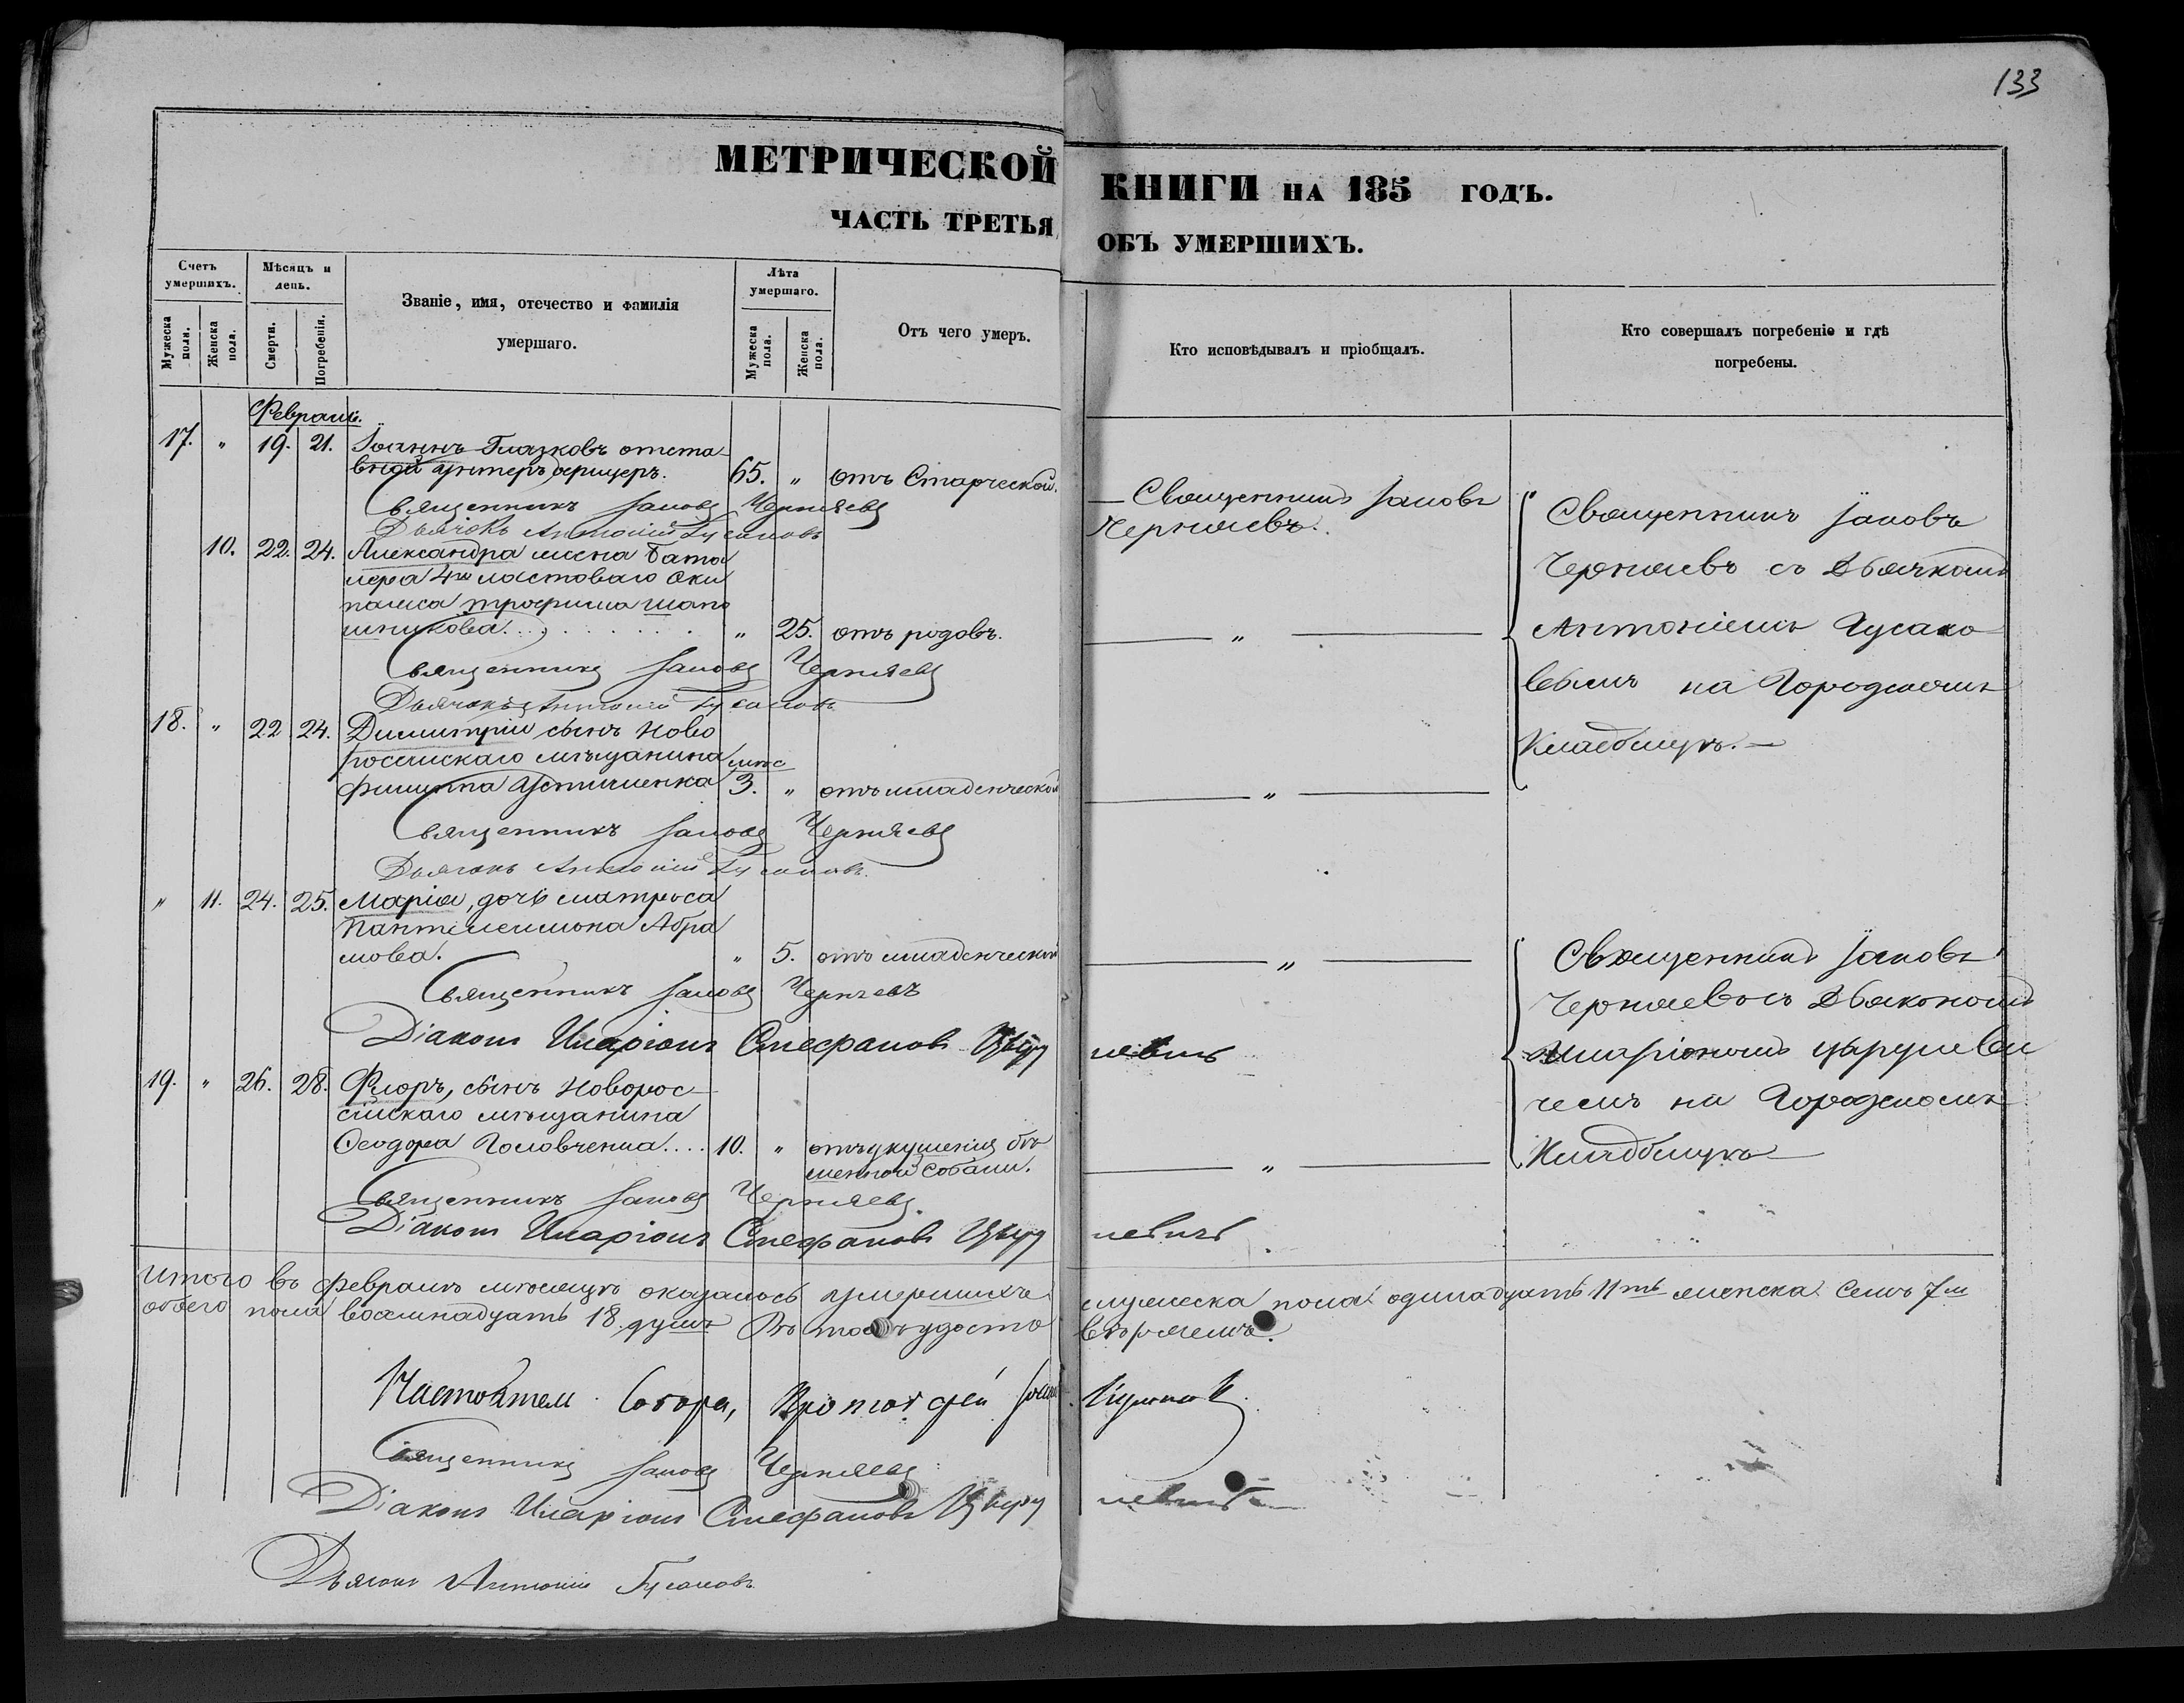 133
МЕТРИЧЕСКОЙ КНИГИ НА 185 ГОДЪ.
ЧАСТЬ ТРЕТЬЯ ОБЪ УМЕРШИХЪ.
Счетъ умершихъ.
Мужеска пола.
Женска пола.
Мѣсяцъ и день.
Смерти.
Погребенія.
Званіе, имя, отечество и фамилія
умершаго.
Лѣта умершаго.
Мужеска пола.
Женска пола.
Отъ чего умеръ.
Кто исповѣдывалъ и пріобщалъ.
Кто совершалъ погребеніе и гдѣ
погребены.
Февраль.
17. " 19. 21. Іоаннъ Глазковъ отста-
вной унтеръ офицеръ. 65. " отъ Старческой.
Священникъ Іаковъ Черняевъ
Дьячокъ Антоній Гусаковъ
— Священникъ Іаковъ
Черняевъ.
10. 22. 24. Александра жена Бата
лера 4го ластоваго Эки
пажа Трофима Шапо
шникова. " 25. отъ родовъ. — " —
Священникъ Іаковъ Черняевъ
Дьячокъ Антоній Гусаковъ
Священникъ Іаковъ
Черняевъ съ Дьячкомъ
Антоніемъ Гусако-
вымъ на Городскомъ
Кладбищѣ. —
18. " 22 24. Димитрій сынъ Ново
россійскаго мѣщанина мѣс
Филиппа Устименка 3. " отъ младенческой — " —
Священникъ Іаковъ Черняевъ
Дьячокъ Антоній Гусаковъ.
" 11. 24. 25. Марія, дочь матроса
Пантелеимона Абра
мова. " 5. отъ младенческой — " —
Священникъ Іаковъ Черняевъ
Діаконъ Иларіонъ Стефановъ
Священникъ Іаковъ
Черняевъ съ Дьякономъ
Иларіономъ Цыруеви
чемъ на Городскомъ
Кладбищѣ —
19. " 26. 28. Флоръ, сынъ Новорос-
сійскаго мѣщанина
Феодора Головченка.... 10. " отъ укушенія бѣ
шенной собаки. — " —
Священникъ Іаковъ Черняевъ.
Діаконъ Иларіонъ Стефановъ
Итого въ Февралѣ мѣсяцѣ оказалось умершихъ мужеска пола одинадцать 11ть женска семь 7м
обоего пола восемнадцать 18 душъ Въ томъ удосто
вѣряемъ.
Настоятель Собора, Протоіерей
Священникъ Іаковъ Черняевъ
Діаконъ Иларіонъ Стефановъ
Дьячокъ Антоній Гусаковъ